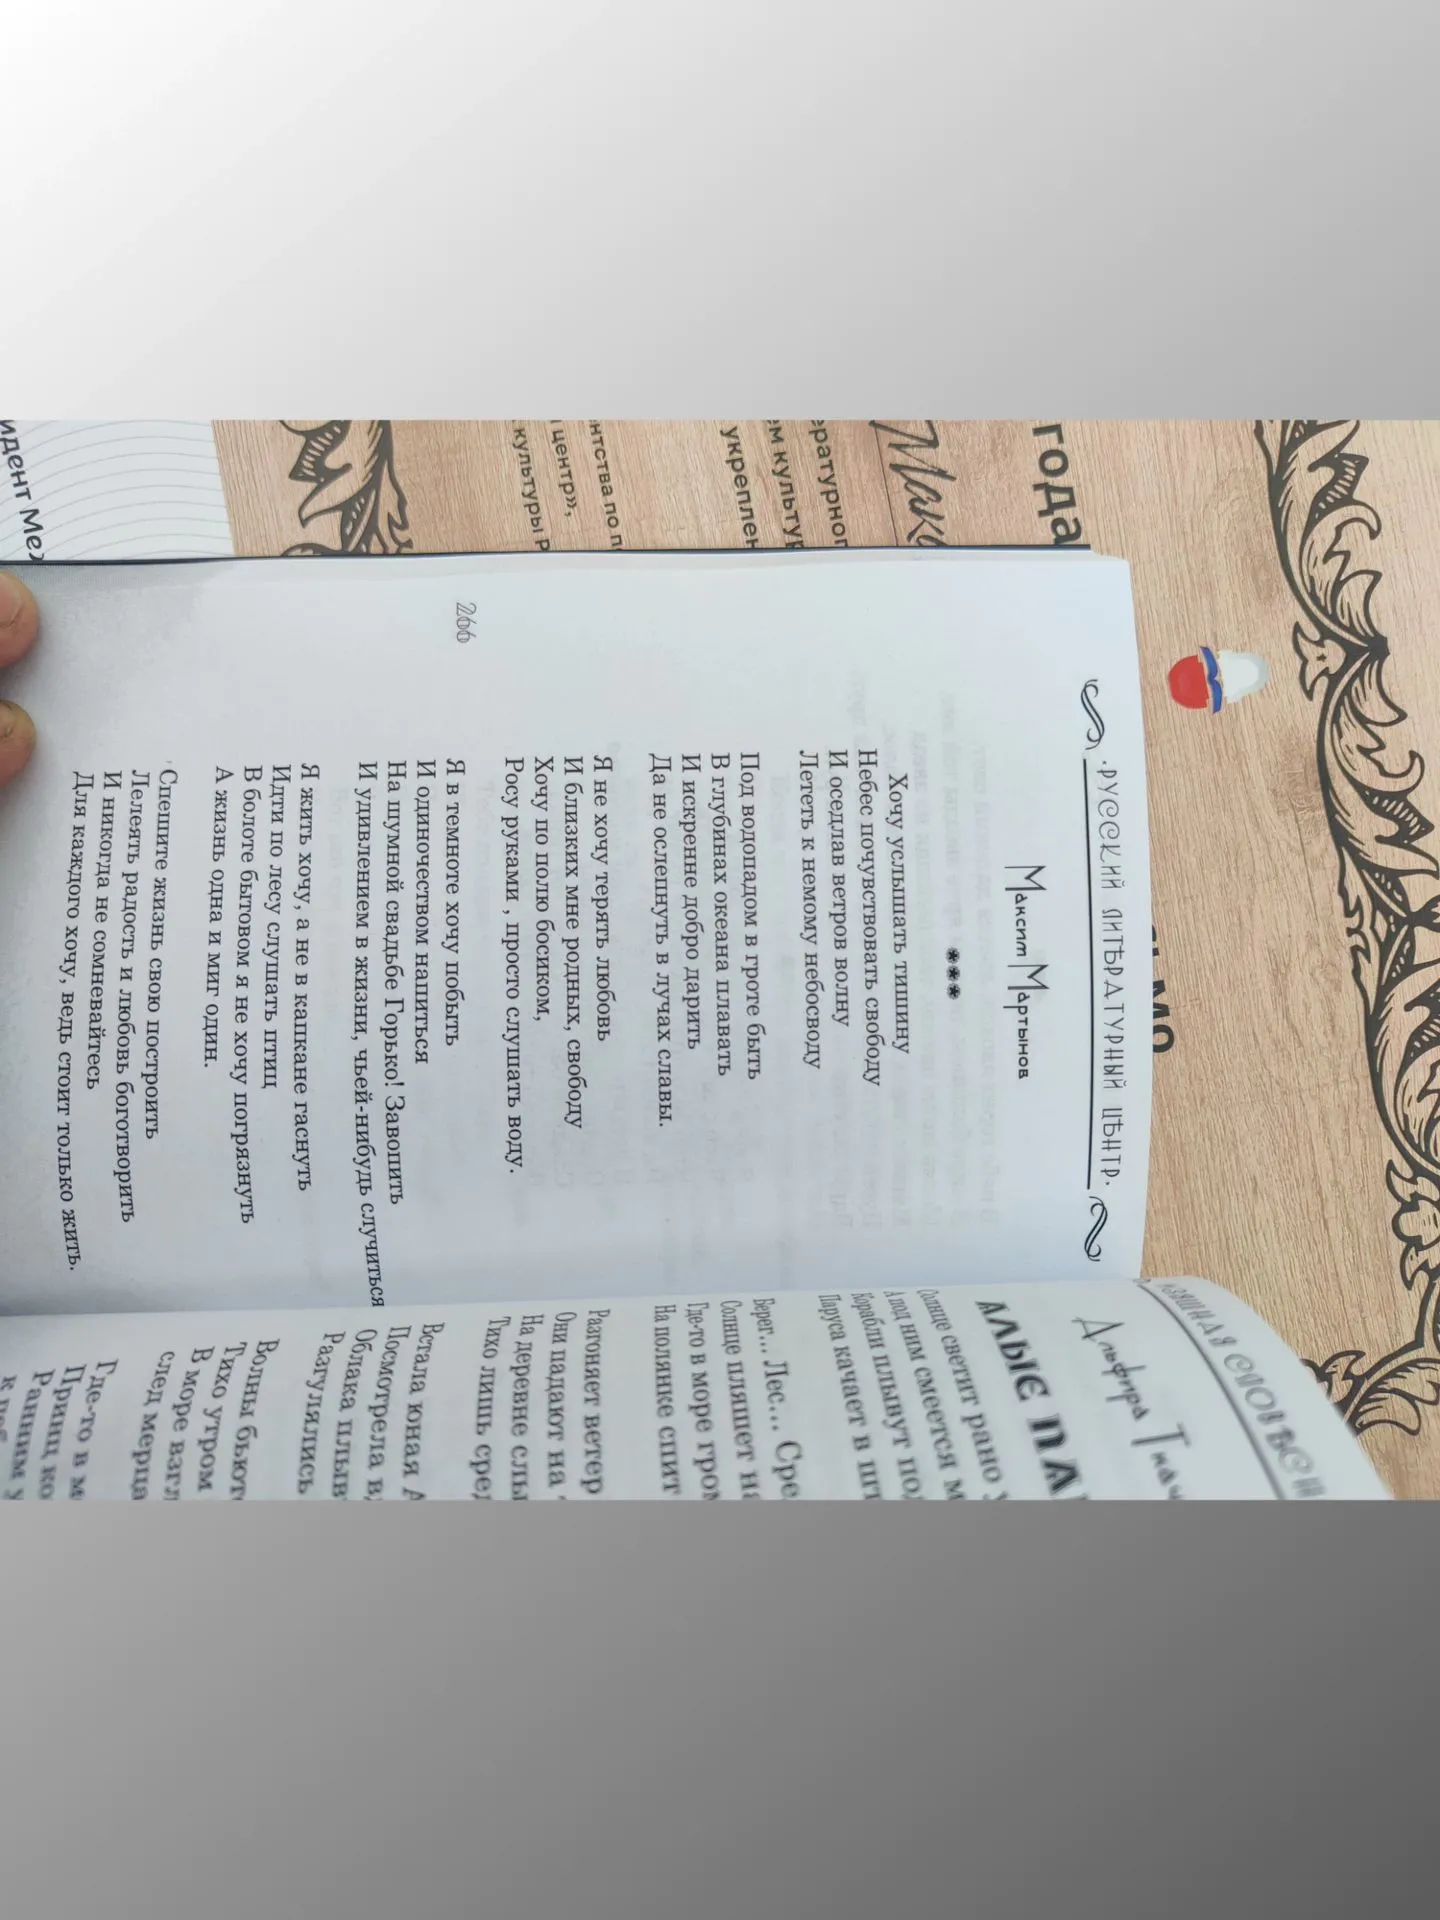 года
Мак
ературног
ем культур
укреплен
нтства по п
центр»,
культуры Р
идент Меж
МО
·РУССКИЙ ЛИТЕРАТУРНЫЙ ЦЕНТР·
Максим Мартынов
***
Хочу услышать тишину
Небес почувствовать свободу
И оседлав ветров волну
Лететь к немому небосводу
Под водопадом в гроте быть
В глубинах океана плавать
И искренне добро дарить
Да не ослепнуть в лучах славы.
Я не хочу терять любовь
И близких мне родных, свободу
Хочу по полю босиком,
Росу руками , просто слушать воду.
Я в темноте хочу побыть
И одиночеством напиться
На шумной свадьбе Горько! Завопить
И удивлением в жизни, чьей-нибудь случиться
Я жить хочу, а не в капкане гаснуть
Идти по лесу слушать птиц
В болоте бытовом я не хочу погрязнуть
А жизнь одна и миг один.
Спешите жизнь свою построить
Лелеять радость и любовь боготворить
И никогда не сомневайтесь
Для каждого хочу, ведь стоит только жить.
266
ИЗЯЩНАЯ СЛОВЕСН
Альфира Ткач
АЛЫЕ ПА
Солнце светит рано у
А под ним смеется м
Корабли плывут по
Паруса качает в шт
Берег... Лес... Сре
Солнце пляшет на
Где-то в море гром
На полянке спит
Разгоняет ветер
Они падают на
На деревне слы
Тихо лишь сред
Встала юная А
Посмотрела в
Облака плыв
Разгулялись
Волны бьют
Тихо утром
В море взгл
след мерца
Где-то в м
Принц ко
Ранним у